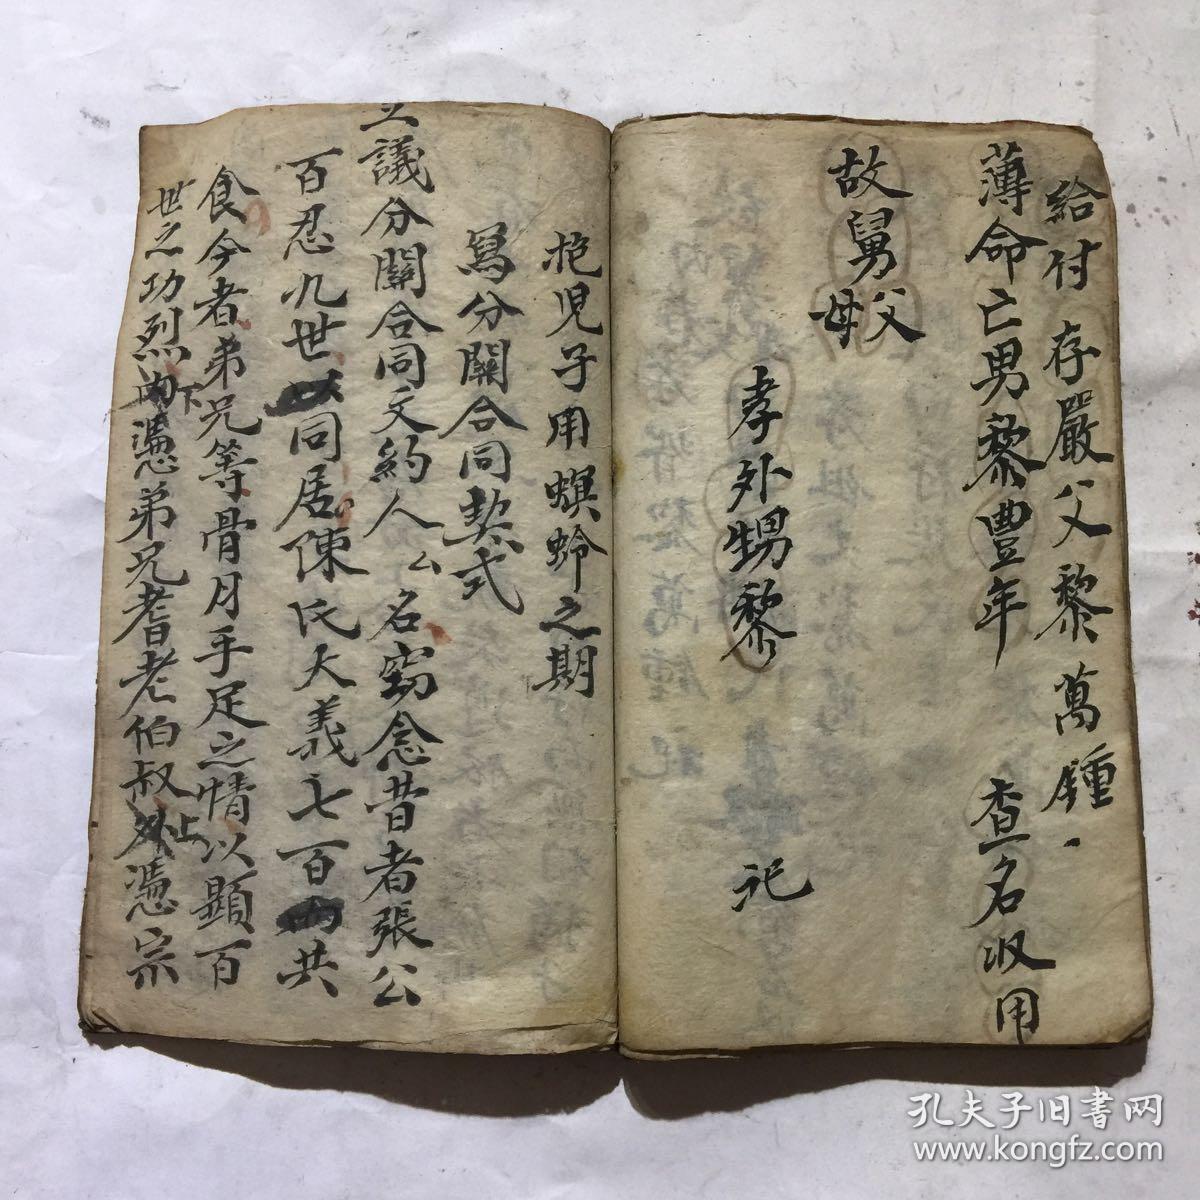 給付 存嚴父黎萬鍾、
薄命亡男黎豐年 查名收用
故舅父母
孝外甥黎 記
抱児子用螟蛉之期
寫分關合同契式
立議分關合同文約人厶名窃念昔者張公
百忍九世同居陳氏大義七百共
食今者弟兄等骨月手足之情以顯百
世之功烈下內憑弟兄耆老伯叔上外憑宗
孔夫子旧書网
www.kongfz.com